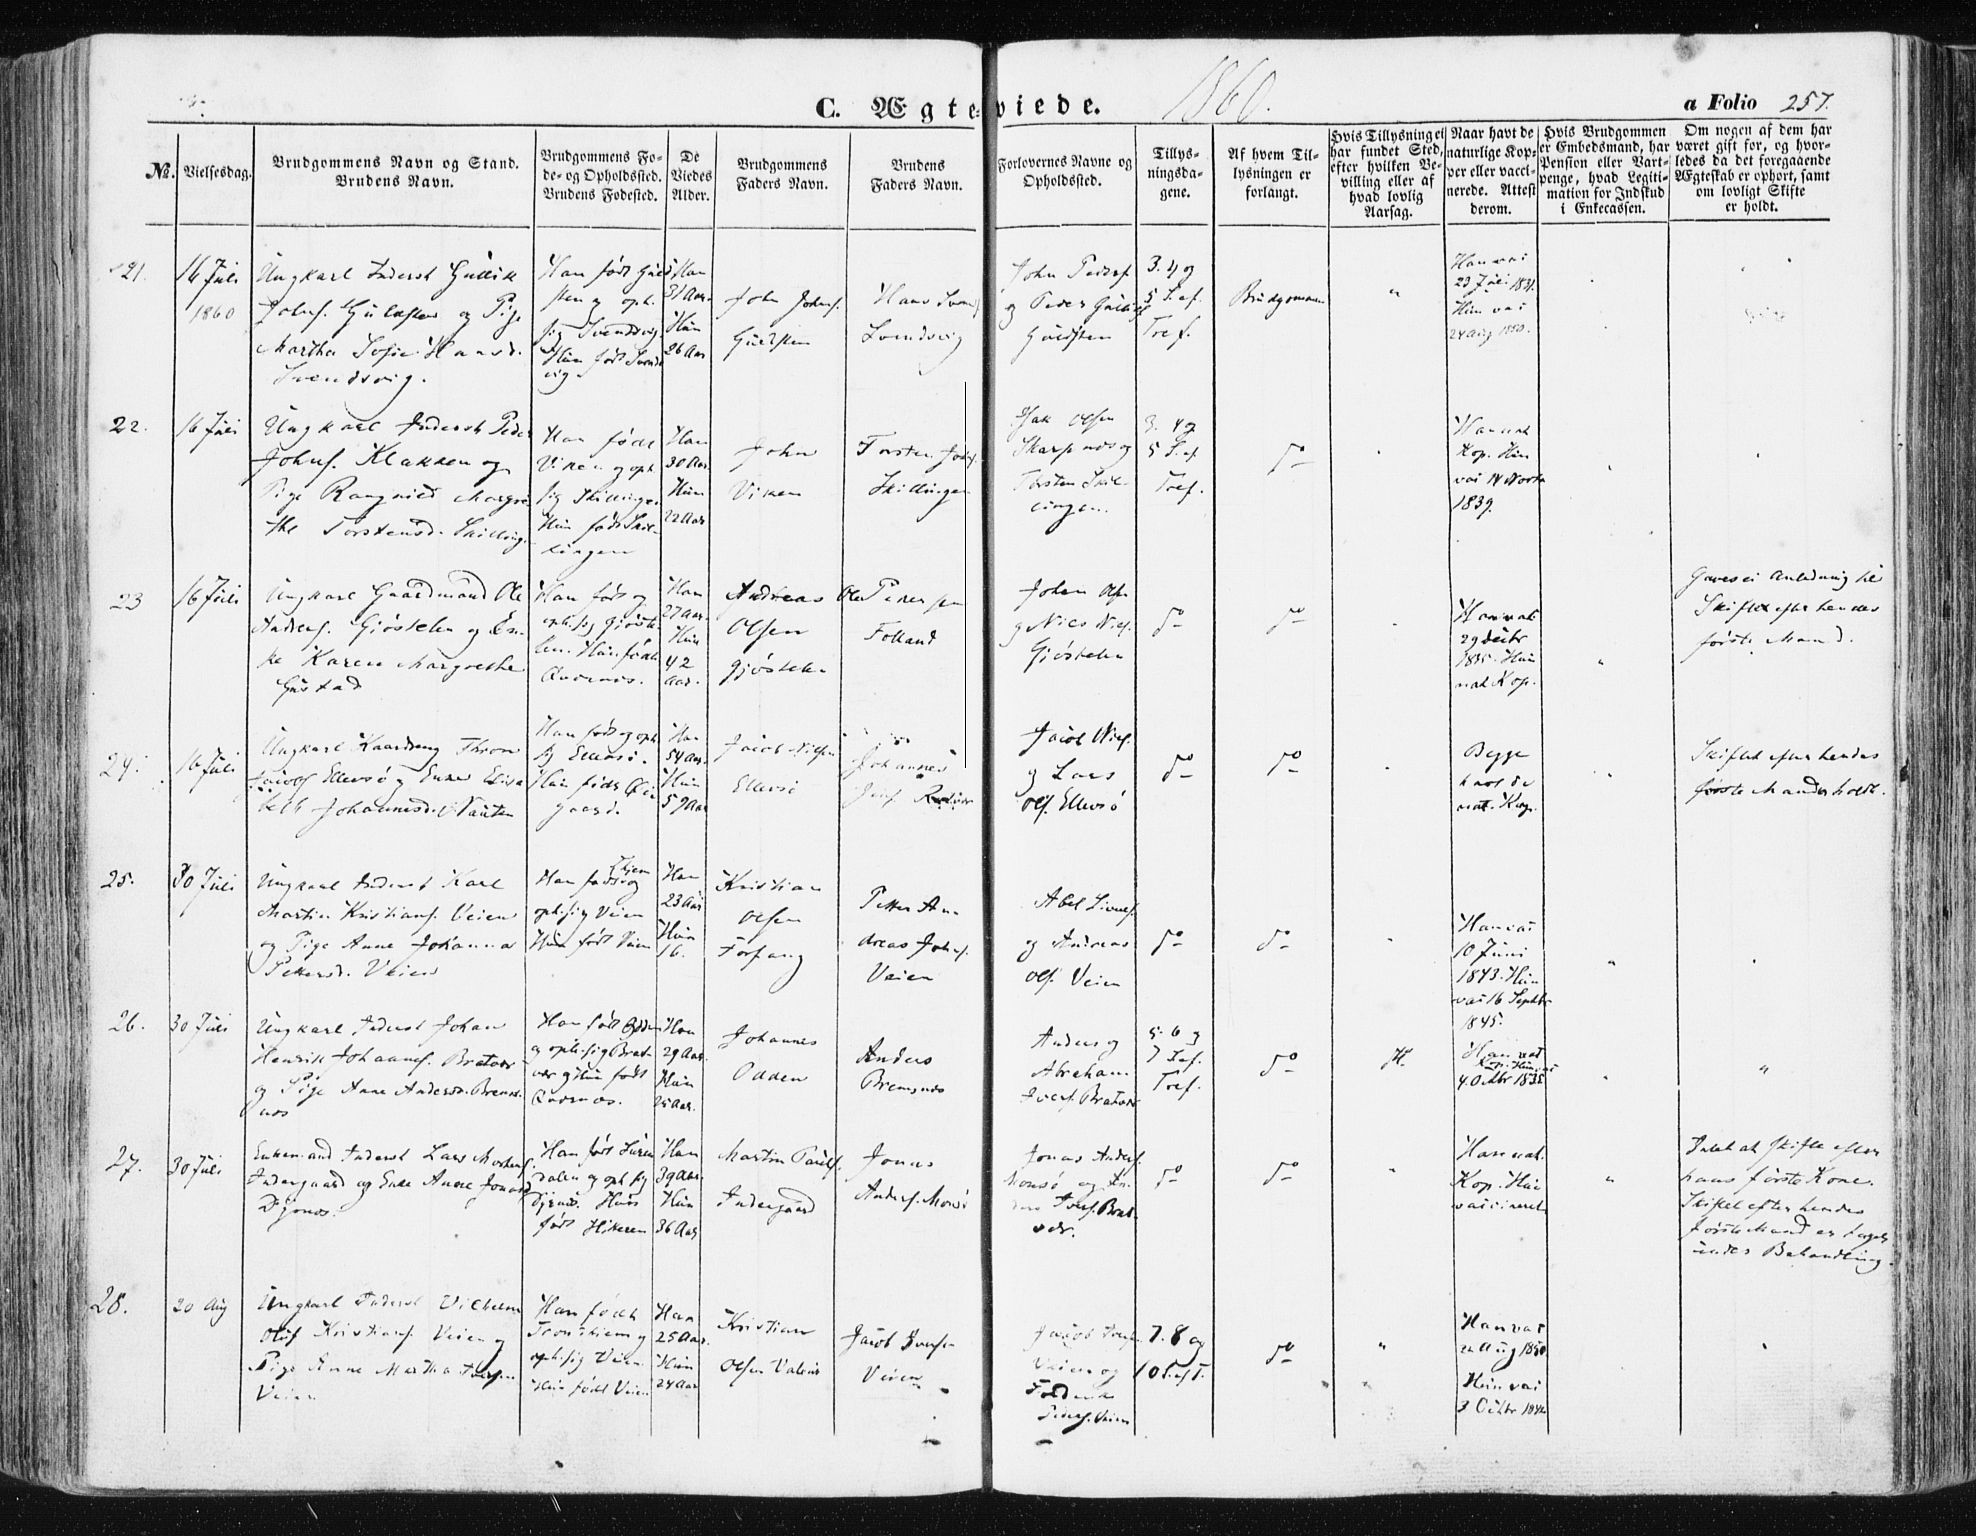 C. Ægteviede. 1860. a Folio 257.
No. Vielsesdag. Brudgommens Navn og Stand. Brudens Navn. Brudgommens Føde- og Opholdssted. Brudens Fødested. De Viedes Alder. Brudgommens Faders Navn. Brudens Faders Navn. Forlovernes Navne og Opholdssted. Tillysningsdagene. Af hvem Tillysningen er forlangt. Hvis Tillysning ei har fundet Sted, efter hvilken Bevilling eller af hvad lovlig Aarsag. Naar havt de naturlige Kopper eller vaccinerede. Attest derom. Hvis Brudgommen er Embedsmand, har Pension eller Vartpenge, hvad Legitimation for Indskud i Enkecassen. Om nogen af dem har været gift før, og hvorledes da det foregaaende Ægteskab er ophørt, samt om lovligt Skifte er holdt.
21.
16 Juli
1860
Ungkarl Inderst Gullik
Johnf. Guldsten og Pige
Martha Sofie Hansd.
Svendsvig.
Han født Guld
sten og oph.
sig Svendsvig
Hun født Svends
vig
Han
31 Aar
Hun
26 Aar
John Johnf.
Guldsten
Hans
Svendsvig
John Pederf.
og Peder
Guldsten
3. 4 og
5 S. ef.
Tref.
Brudgommen
"
Han vai
23 Juli 1831.
Hun vai
24 Aug 1850.
22.
16 Juli
Ungkarl Inderst Peder
Johnf. Klakken og
Pige Ragnild Margre
the Torstensd. Skilling
Han født
Viken og oph.
sig Skillingen
Hun født Skil-
lingen
Han
30 Aar
Hun
22 Aar
John
Viken
Torsten Johnf.
Skillingen
Isak Olsen
Skarpnæs og
Torsten Skil-
lingen.
3. 4 og
5 S. ef.
Tref.
do
Han nat.
Kop. Hun
vai
1839.
23
16 Juli
Ungkarl Gaardmand Ole
Andreaf. Gjøstelen og En-
ke Karen Margrethe
Gustad
Han født og
oph. sig Gjøste
len. Hun født
Qværnes.
Han
27 Aar
Hun
42
Aar.
Andreas
Olsen
Gjøstelen
Ole Petersen
Folland
Johan Olsen
og Niels Nielf.
Gjøstelen
do
do
Han vai
29
1835. Hun
nat. Kop.
"
Gaves ei Anledning til
Skiftet efter hendes
første Mand.
24.
16 Juli
Ungkarl Thron
Jacobf. Ellevsø og Enke Elisa
beth Johannesd.
Han født og oph
sig Ellevsø.
Hun født
gaard.
Han
54 Aar.
Hun
59 Aar
Jacob Nielsen
Ellevsø
Johannes
Jacob Nielf.
og Lars
Olf. Ellevsø
do
do
Begge
havt de
nat. Kop.
"
Skiftet efter hendes
første Mand er holdt.
25.
30 Juli
Ungkarl Inderst Karl
Martin Kristianf. Veien
og Pige Anne Johanna
Pettersd. Veien
Han født og
oph. sig Veien
Hun født Veien
Han
23 Aar
Hun
16.
Kristian
Olsen
Forfang
Petter An-
dreas Johnf.
Veien
Abel
og Andreas
Olf. Veien
do
do
Han vai
10 Juni
1843. Hun
vai 16 Septbr
1845.
"
26.
30 Juli
Ungkarl Inderst Johan
Henrik Johannesf. Bratvær
og Pige Anne Andersd. Brems-
nes
Han født Odden
og oph. sig Brat-
vær og Hun født
Qværnes.
Han
29 Aar
Hun
25 Aar.
Johannes
Odden
Anders
Bremsnes
Anders og
Abraham
Iverf. Bratvær
5. 6 og
7 S. ef.
Tref.
do
Han nat
Kop. Hun vai
4 Octbr 1835
"
27.
30 Juli
Enkemand Inderst Lars Mortenf.
Indergaard og Enke Anne Jonasd.
Dyrnes.
Han født Surin
dalen og oph. sig
Dyrnes. Hun
født Hitteren
Han
39 Aar
Hun
36 Aar
Martin Paulf.
Indergaard
Jonas
Anderf. Monsø
Jonas Anderf.
Monsø og An-
ders Iverf. Brat-
vær.
do
do
"
Han nat.
Kop. Hun
vaicineret
"
Intet at skifte efter
hans første Kone.
Skiftet efter hendes
første Mand er taget
under Behandling.
28.
20 Aug
Ungkarl Inderst Vilhelm
Oluf Kristianf. Veien og
Pige Anne Martha
Veien
Han født
Trondhiem og
oph. sig Veien.
Hun født Veien
Han
25 Aar.
Hun
24 Aar
Kristian
Olsen
Jacob Iversen
Veien
Jacob Iverf.
Veien og
Frederik
Pederf. Veien
7. 8 og
10 S. ef T.
do
"
Han vai
Aug 1850
Hun vai
3 Octbr 1840